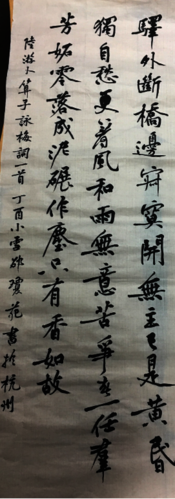 驛外斷橋邊寂寞開無主已是黃昏
獨自愁更著風和雨無意苦爭春一任羣
芳妬零落成泥碾作塵只有香如故
陸游卜算子詠梅詞一首丁酉小雪後瓊花書於杭州